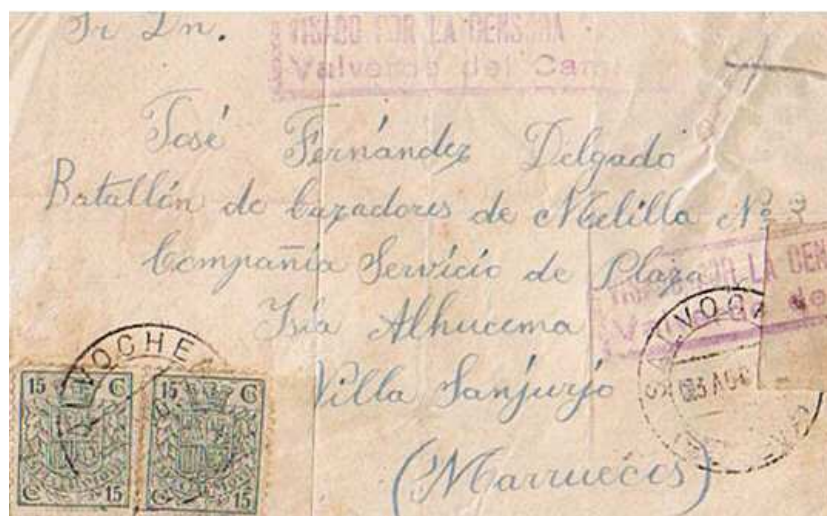 Sr Dn.
VISADO POR LA CENSURA
Valverde del Cam
José Fernández Delgado
Batallón de Cazadores de Melilla Nº 3
Compañía Servicio de Plaza
Isla Alhucema
Villa Sanjurjo
(Marruecos)
POR LA CEN
de
VOCHE
15 Cs 15 Cs
Cs 15 Cs 15